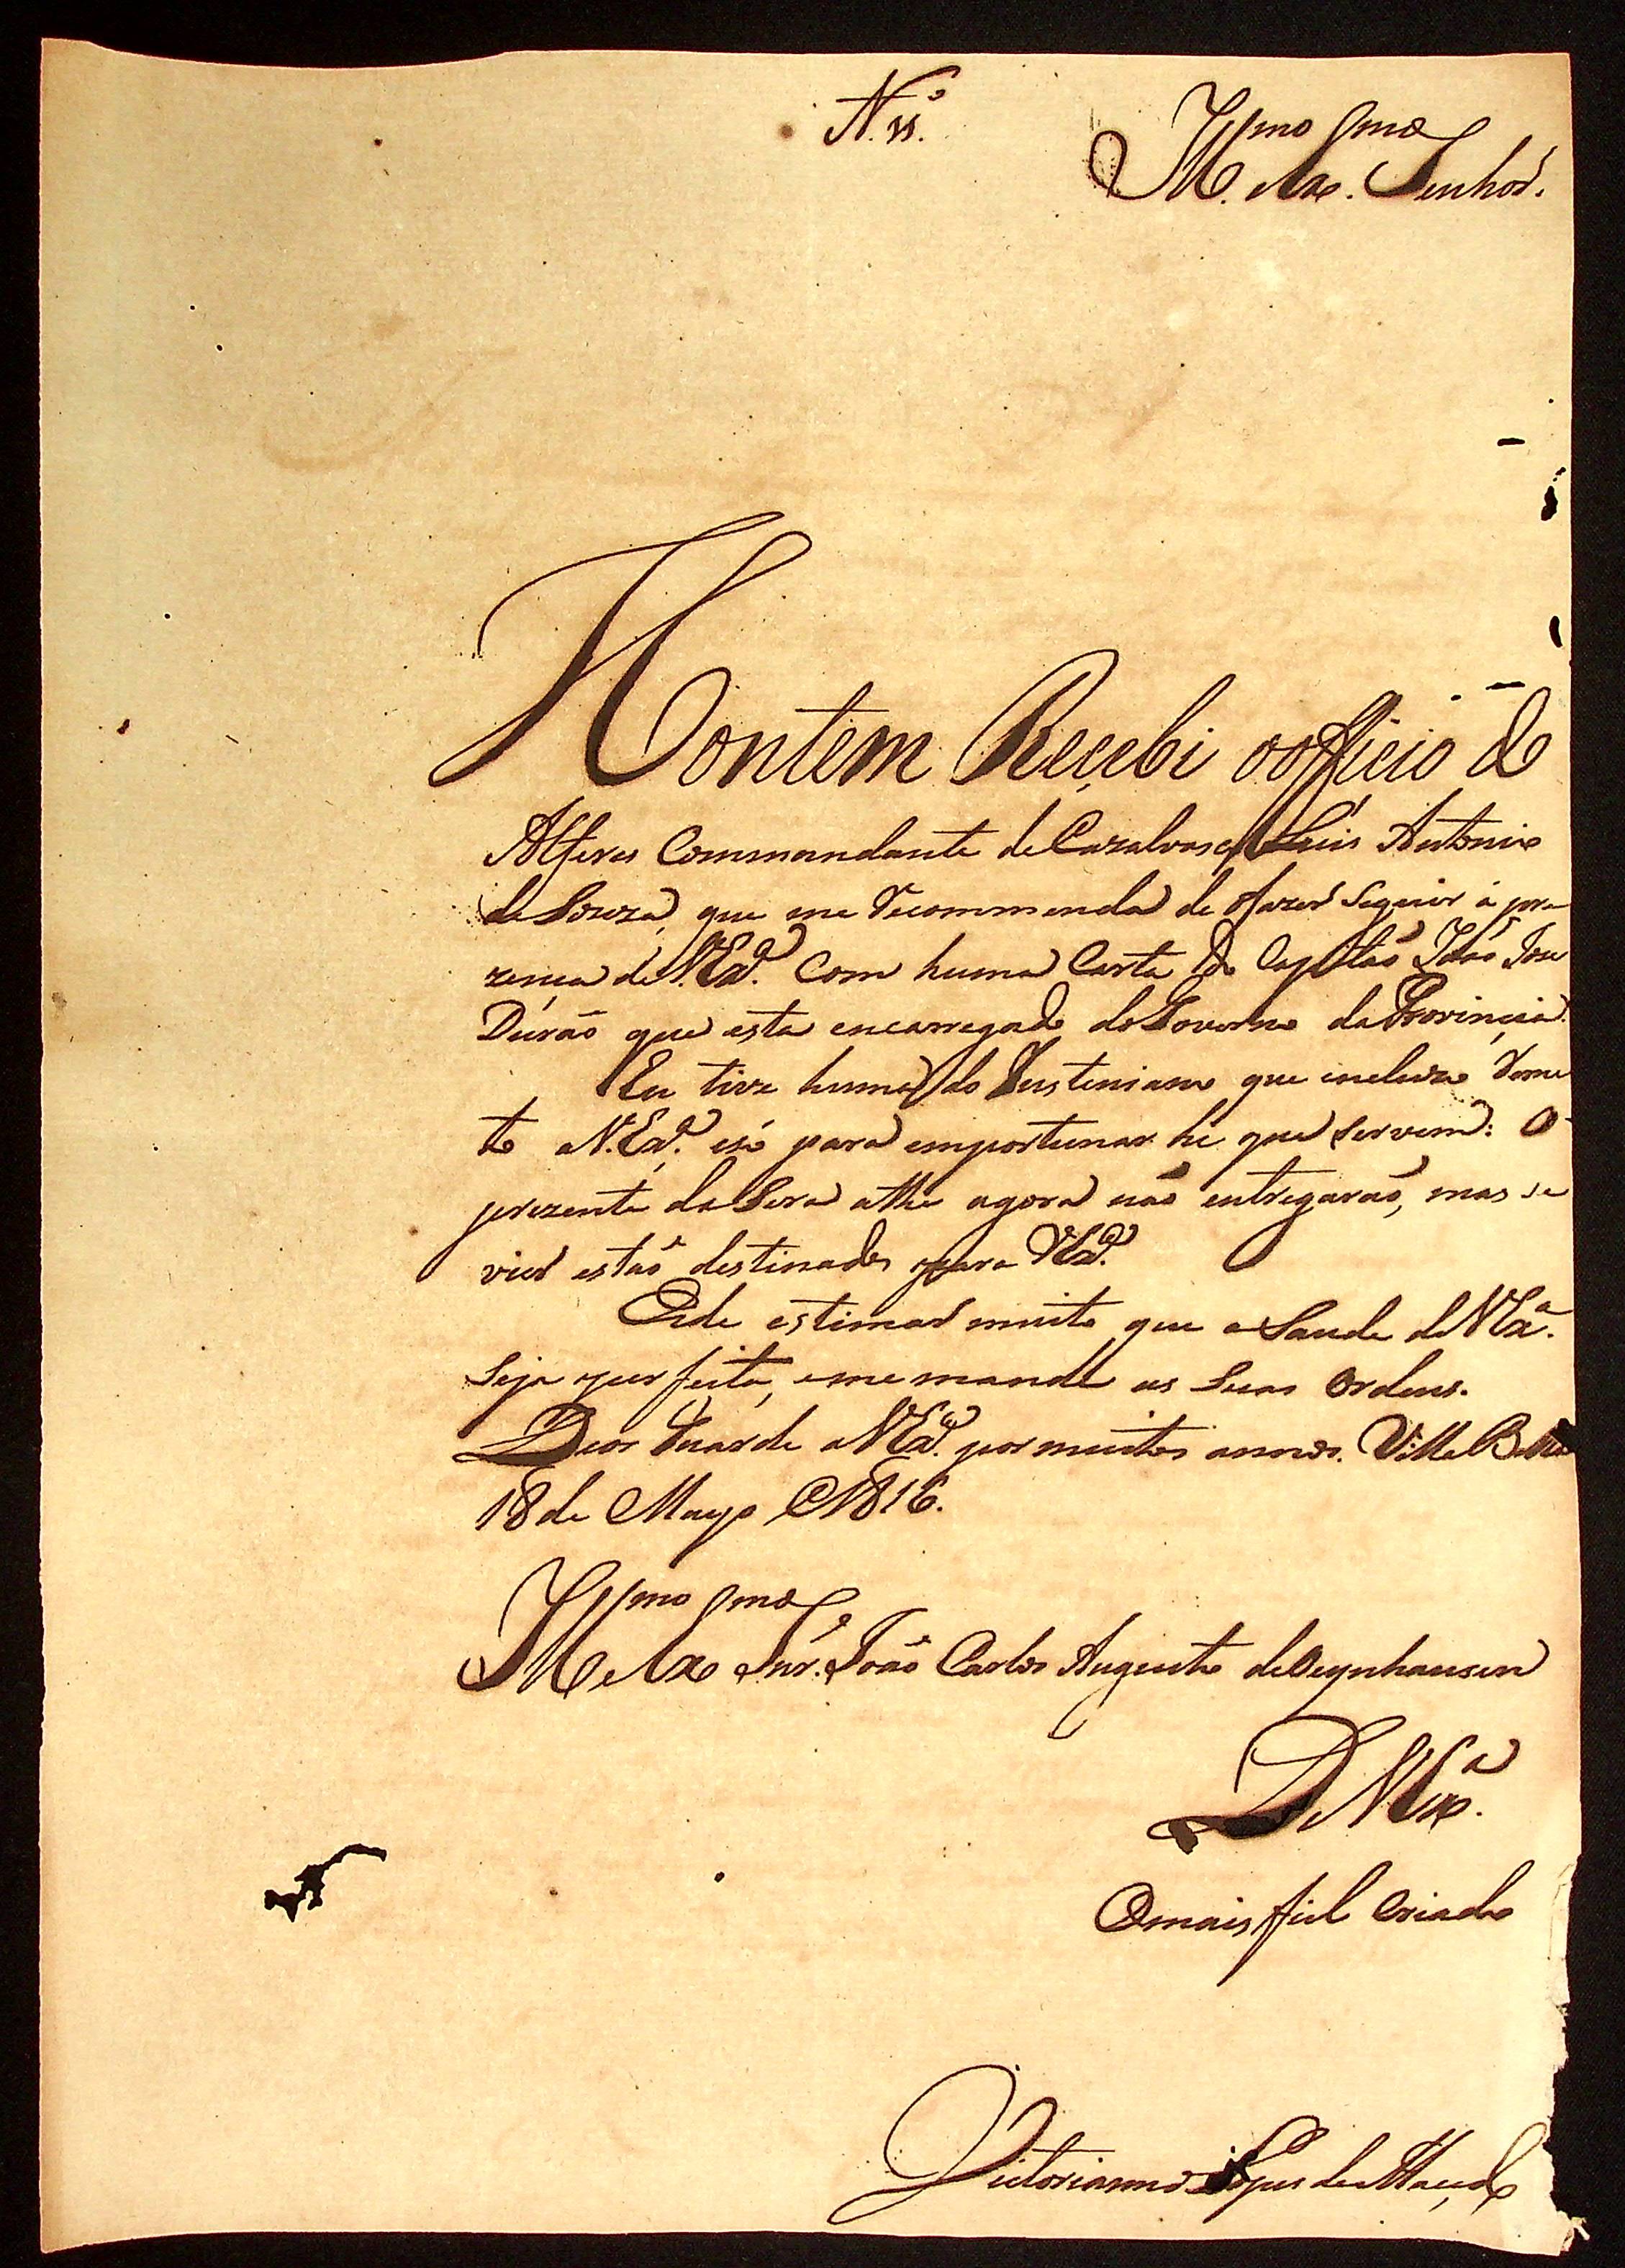 N.º 11.
Ill.mo e Ex.mo Senhor.
Hontem Recebi o officio do
Alferes Commandante de Cazalvasco Luis Antonio
de Souza, que me recommenda de fazer seguir á pre-
zença de V. Ex.ª com huma Carta do Capitaõ Joaõ Joze
Duraõ que esta encarregado do Governo da Provinçia.
Eu tive huma do Justeniano que incluza reme
to a V. Ex.ª, e só para emportunar hé que servem: O
prezente da Sera athe agora naõ entregaraõ, mas se
vier estaõ destinados para V. Ex.ª
Ei de estimar muito que a Saude de V. Ex.ª
Seja perfeita, e me mande as Suas Ordens.
Deos Guarde a V. Ex.ª por muitos annos. Villa Bella
18 de Mayo de 1816.
Ill.mo e Ex.mo Snr. Joaõ Carlos Augusto de Oeynhausen
De V. Ex.ª
O mais fiel Criado
Victorianno Lopes de Maçedo